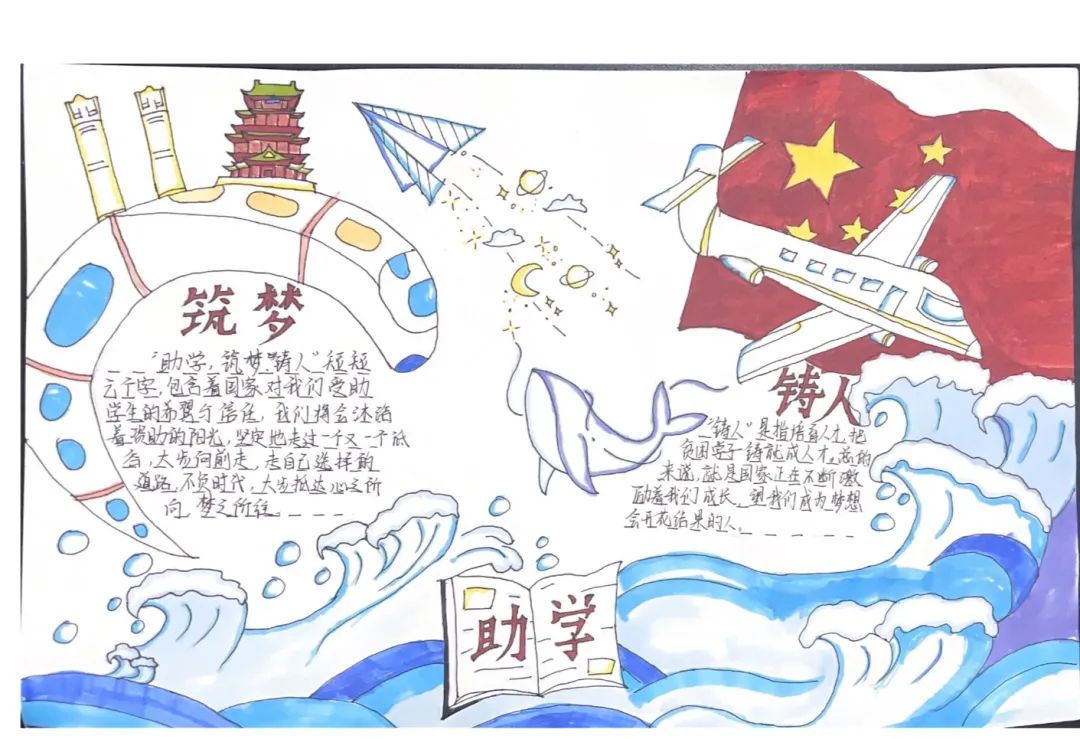 筑梦
"助学,筑梦"铸人"短短
六个字,包含着国家对我们受助
学生的希翼与信任,我们将会沐浴
着资助的阳光,坚定地走过一个又一个低
谷,大步向前走,走自己选择的
道路,不负时代,大步抵达心之所
向,梦之所往。
铸人
"铸人"是指培育人才,把
贫困学子铸就成人才。总的
来说,就是国家正在不断激
励着我们成长,望我们成为梦想
会开花结果的人。
助学